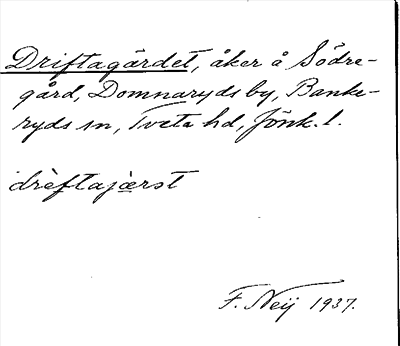 Driftagärdet, åker å Södre-
gård, Domnaryds by, Banke-
ryds sn, Tveta hd, Jönk. l.
drèftajærst
F. Neij 1937.